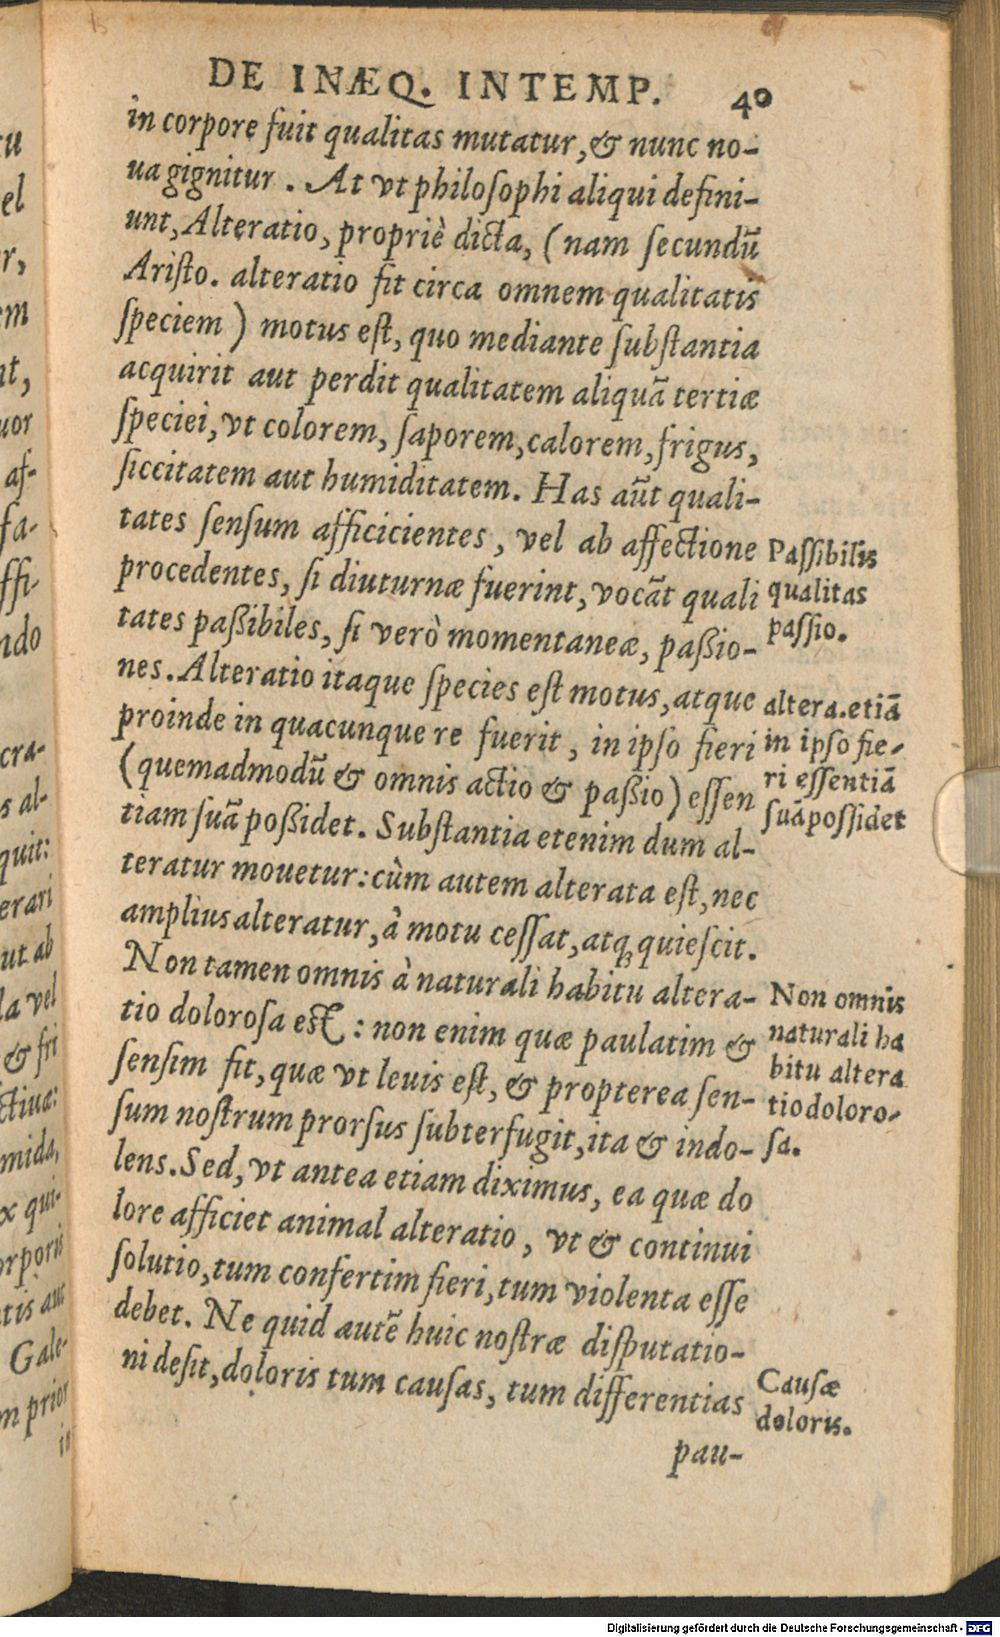 DE INÆQ. INTEMP. 40
in corpore fuit qualitas mutatur, & nunc no-
ua gignitur. At vt philoſophi aliqui defini-
unt, Alteratio, propriè dicta, (nam ſecundū
Ariſto. alteratio fit circa omnem qualitatis
ſpeciem) motus eſt, quo mediante ſubſtantia
acquirit aut perdit qualitatem aliquā tertiæ
ſpeciei, vt colorem, ſaporem, calorem, frigus,
ſiccitatem aut humiditatem. Has aūt quali-
tates ſenſum afficicientes, vel ab affectione
procedentes, ſi diuturnæ fuerint, vocāt quali
tates paßibiles, ſi verò momentaneæ, paßio-
nes. Alteratio itaque ſpecies eſt motus, atque
proinde in quacunque re fuerit, in ipſo fieri
(quemadmodū & omnis actio & paßio) eſſen
tiam ſuā poßidet. Subſtantia etenim dum al-
teratur mouetur: cùm autem alterata eſt, nec
amplius alteratur, à motu ceſſat, atq; quieſcit.
Non tamen omnis à naturali habitu altera-
tio doloroſa eſt: non enim quæ paulatim &
ſenſim fit, quæ vt leuis eſt, & propterea ſen-
ſum noſtrum prorſus ſubterfugit, ita & indo-
lens. Sed, vt antea etiam diximus, ea quæ do
lore afficiet animal alteratio, vt & continui
ſolutio, tum confertim fieri, tum violenta eſſe
debet. Ne quid autē huic noſtræ diſputatio-
ni deſit, doloris tum cauſas, tum differentias
pau-
Paſſibilis
qualitas
paſſio.
altera. etiā
in ipſo fie-
ri eſſentiā
ſuā poſſidet
Non omnis
naturali ha
bitu altera
tio doloro-
ſa.
Cauſæ
doloris.
el
r,
em
nt,
uor
af-
fa-
ffi-
ndo
cra-
s al-
quit:
erari
ut ab
la vel
& fri
ctiua:
mida,
x qui-
orporis
tis aut
Gale-
m prior
in
Digitalisierung gefördert durch die Deutsche Forschungsgemeinschaft - DFG